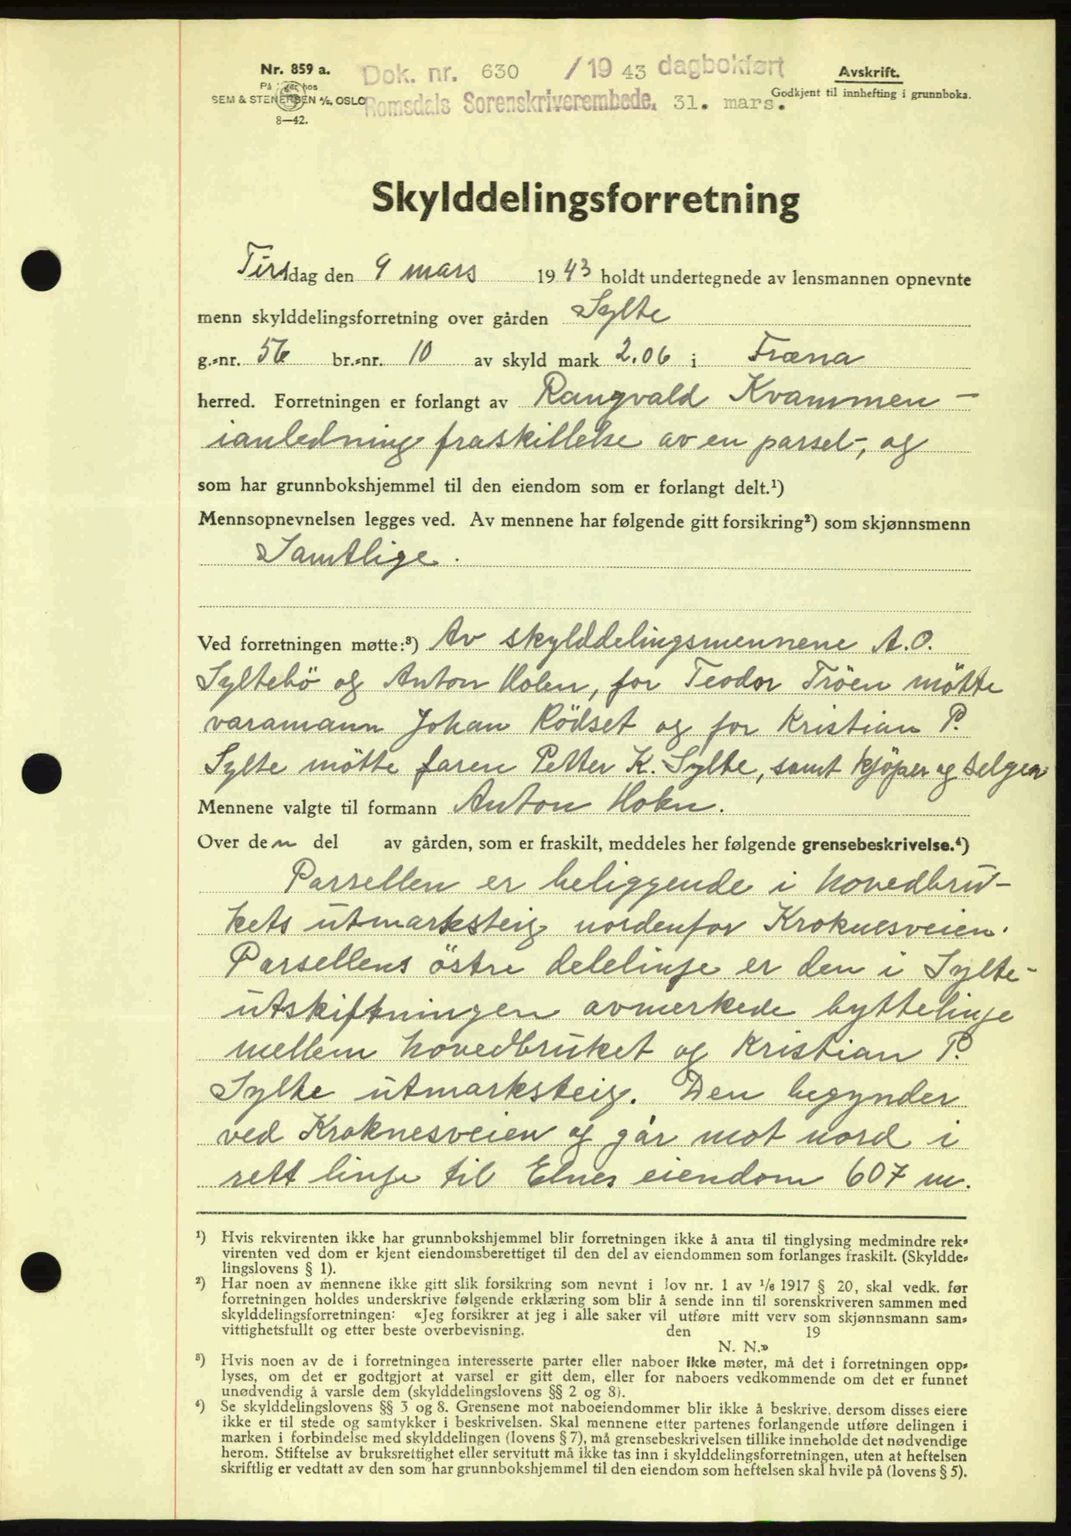 Nr. 859 a.
Dok. nr. 630 /1943 dagbokført
Avskrift.
SEM & STENERSEN A/S, OSLO
Romsdals Sorenskriverembede. 31. mars.
Godkjent til innhefting i grunnboka.
8—42.
Skylddelingsforretning
Tirsdag den 9 mars 1943 holdt undertegnede av lensmannen opnevnte
menn skylddelingsforretning over gården Sylte
g.-nr. 56 br.-nr. 10 av skyld mark 2.06 i Fræna
herred. Forretningen er forlangt av Rangvald Kvammen –
ianledning fraskillelse av en parsel-, og
som har grunnbokshjemmel til den eiendom som er forlangt delt.¹)
Mennsopnevnelsen legges ved. Av mennene har følgende gitt forsikring²) som skjønnsmenn
Samtlige.
Ved forretningen møtte:³) Av skylddelingsmennene A.O.
Syltebö og Anton Holen, for Teodor Tröen mötte
varamann Johan Rödset og for Kristian P.
Sylte mötte faren Petter K. Sylte, samt kjöper og selger
Mennene valgte til formann Anton Holen.
Over den del av gården, som er fraskilt, meddeles her følgende grensebeskrivelse.⁴)
Parsellen er beliggende i hovedbru-
kets utmarksteig nordenfor Kroknesveien.
Parsellens östre delelinje er den i Sylte-
utskiftningen avmerkede byttelinje
mellem hovedbruket og Kristian P.
Sylte utmarksteig. Den begynder
ved Kroknesveien og går mot nord i
rett linje til Elnes eiendom 607 m.
¹) Hvis rekvirenten ikke har grunnbokshjemmel blir forretningen ikke å anta til tinglysing medmindre rek-
virenten ved dom er kjent eiendomsberettiget til den del av eiendommen som forlanges fraskilt. (Skyldde-
lingslovens § 1).
²) Har noen av mennene ikke gitt slik forsikring som nevnt i lov nr. 1 av 1/6 1917 § 20, skal vedk. før
forretningen holdes underskrive følgende erklæring som blir å sende inn til sorenskriveren sammen med
skylddelingsforretningen: «Jeg forsikrer at jeg i alle saker vil utføre mitt verv som skjønnsmann sam-
vittighetsfullt og etter beste overbevisning. den 19
N. N.»
³) Hvis noen av de i forretningen interesserte parter eller naboer ikke møter, må det i forretningen opp-
lyses, om det er godtgjort at varsel er gitt dem, eller for naboers vedkommende om det er funnet
unødvendig å varsle dem (skylddelingslovens §§ 2 og 8).
⁴) Se skylddelingslovens §§ 3 og 8. Grensene mot naboeiendommer blir ikke å beskrive, dersom disses eiere
ikke er til stede og samtykker i beskrivelsen. Skal mennene etter partenes forlangende utføre delingen i
marken i forbindelse med skylddelingen (lovens § 7), må grensebeskrivelsen tillike inneholde det nødvendige
herom. Stiftelse av bruksrettighet eller servitutt må ikke tas inn i skylddelingsforretningen, uten at heftelsen
skriftlig er vedtatt av den som har grunnbokshjemmel til den eiendom som heftelsen skal hvile på (lovens § 5).